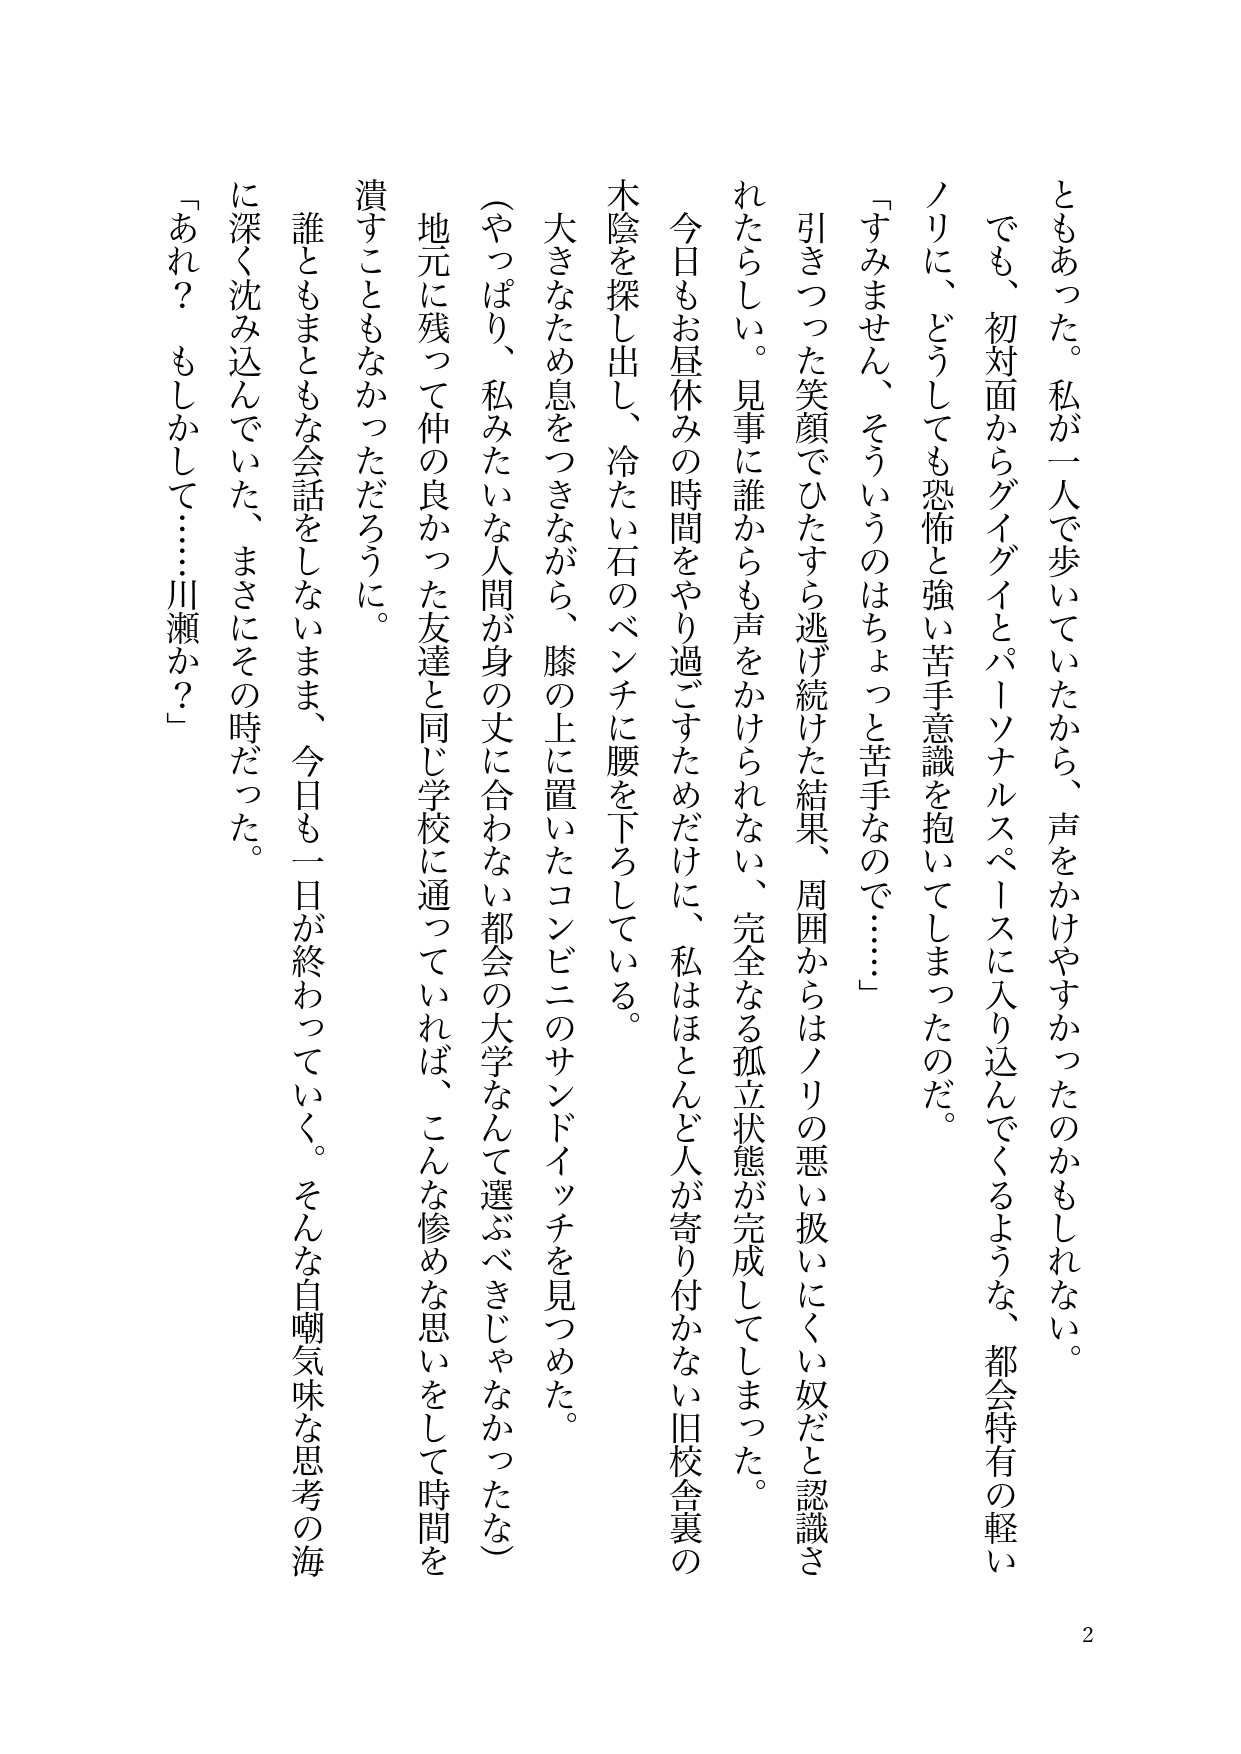 ともあった。私が一人で歩いていたから、声をかけやすかったのかもしれない。
　でも、初対面からグイグイとパーソナルスペースに入り込んでくるような、都会特有の軽い
ノリに、どうしても恐怖と強い苦手意識を抱いてしまったのだ。
「すみません、そういうのはちょっと苦手なので……」
　引きつった笑顔でひたすら逃げ続けた結果、周囲からはノリの悪い扱いにくい奴だと認識さ
れたらしい。見事に誰からも声をかけられない、完全なる孤立状態が完成してしまった。
　今日もお昼休みの時間をやり過ごすためだけに、私はほとんど人が寄り付かない旧校舎裏の
木陰を探し出し、冷たい石のベンチに腰を下ろしている。
　大きなため息をつきながら、膝の上に置いたコンビニのサンドイッチを見つめた。
（やっぱり、私みたいな人間が身の丈に合わない都会の大学なんて選ぶべきじゃなかったな）
　地元に残って仲の良かった友達と同じ学校に通っていれば、こんな惨めな思いをして時間を
潰すこともなかっただろうに。
　誰ともまともな会話をしないまま、今日も一日が終わっていく。そんな自嘲気味な思考の海
に深く沈み込んでいた、まさにその時だった。
「あれ？　もしかして……川瀬か？」
2